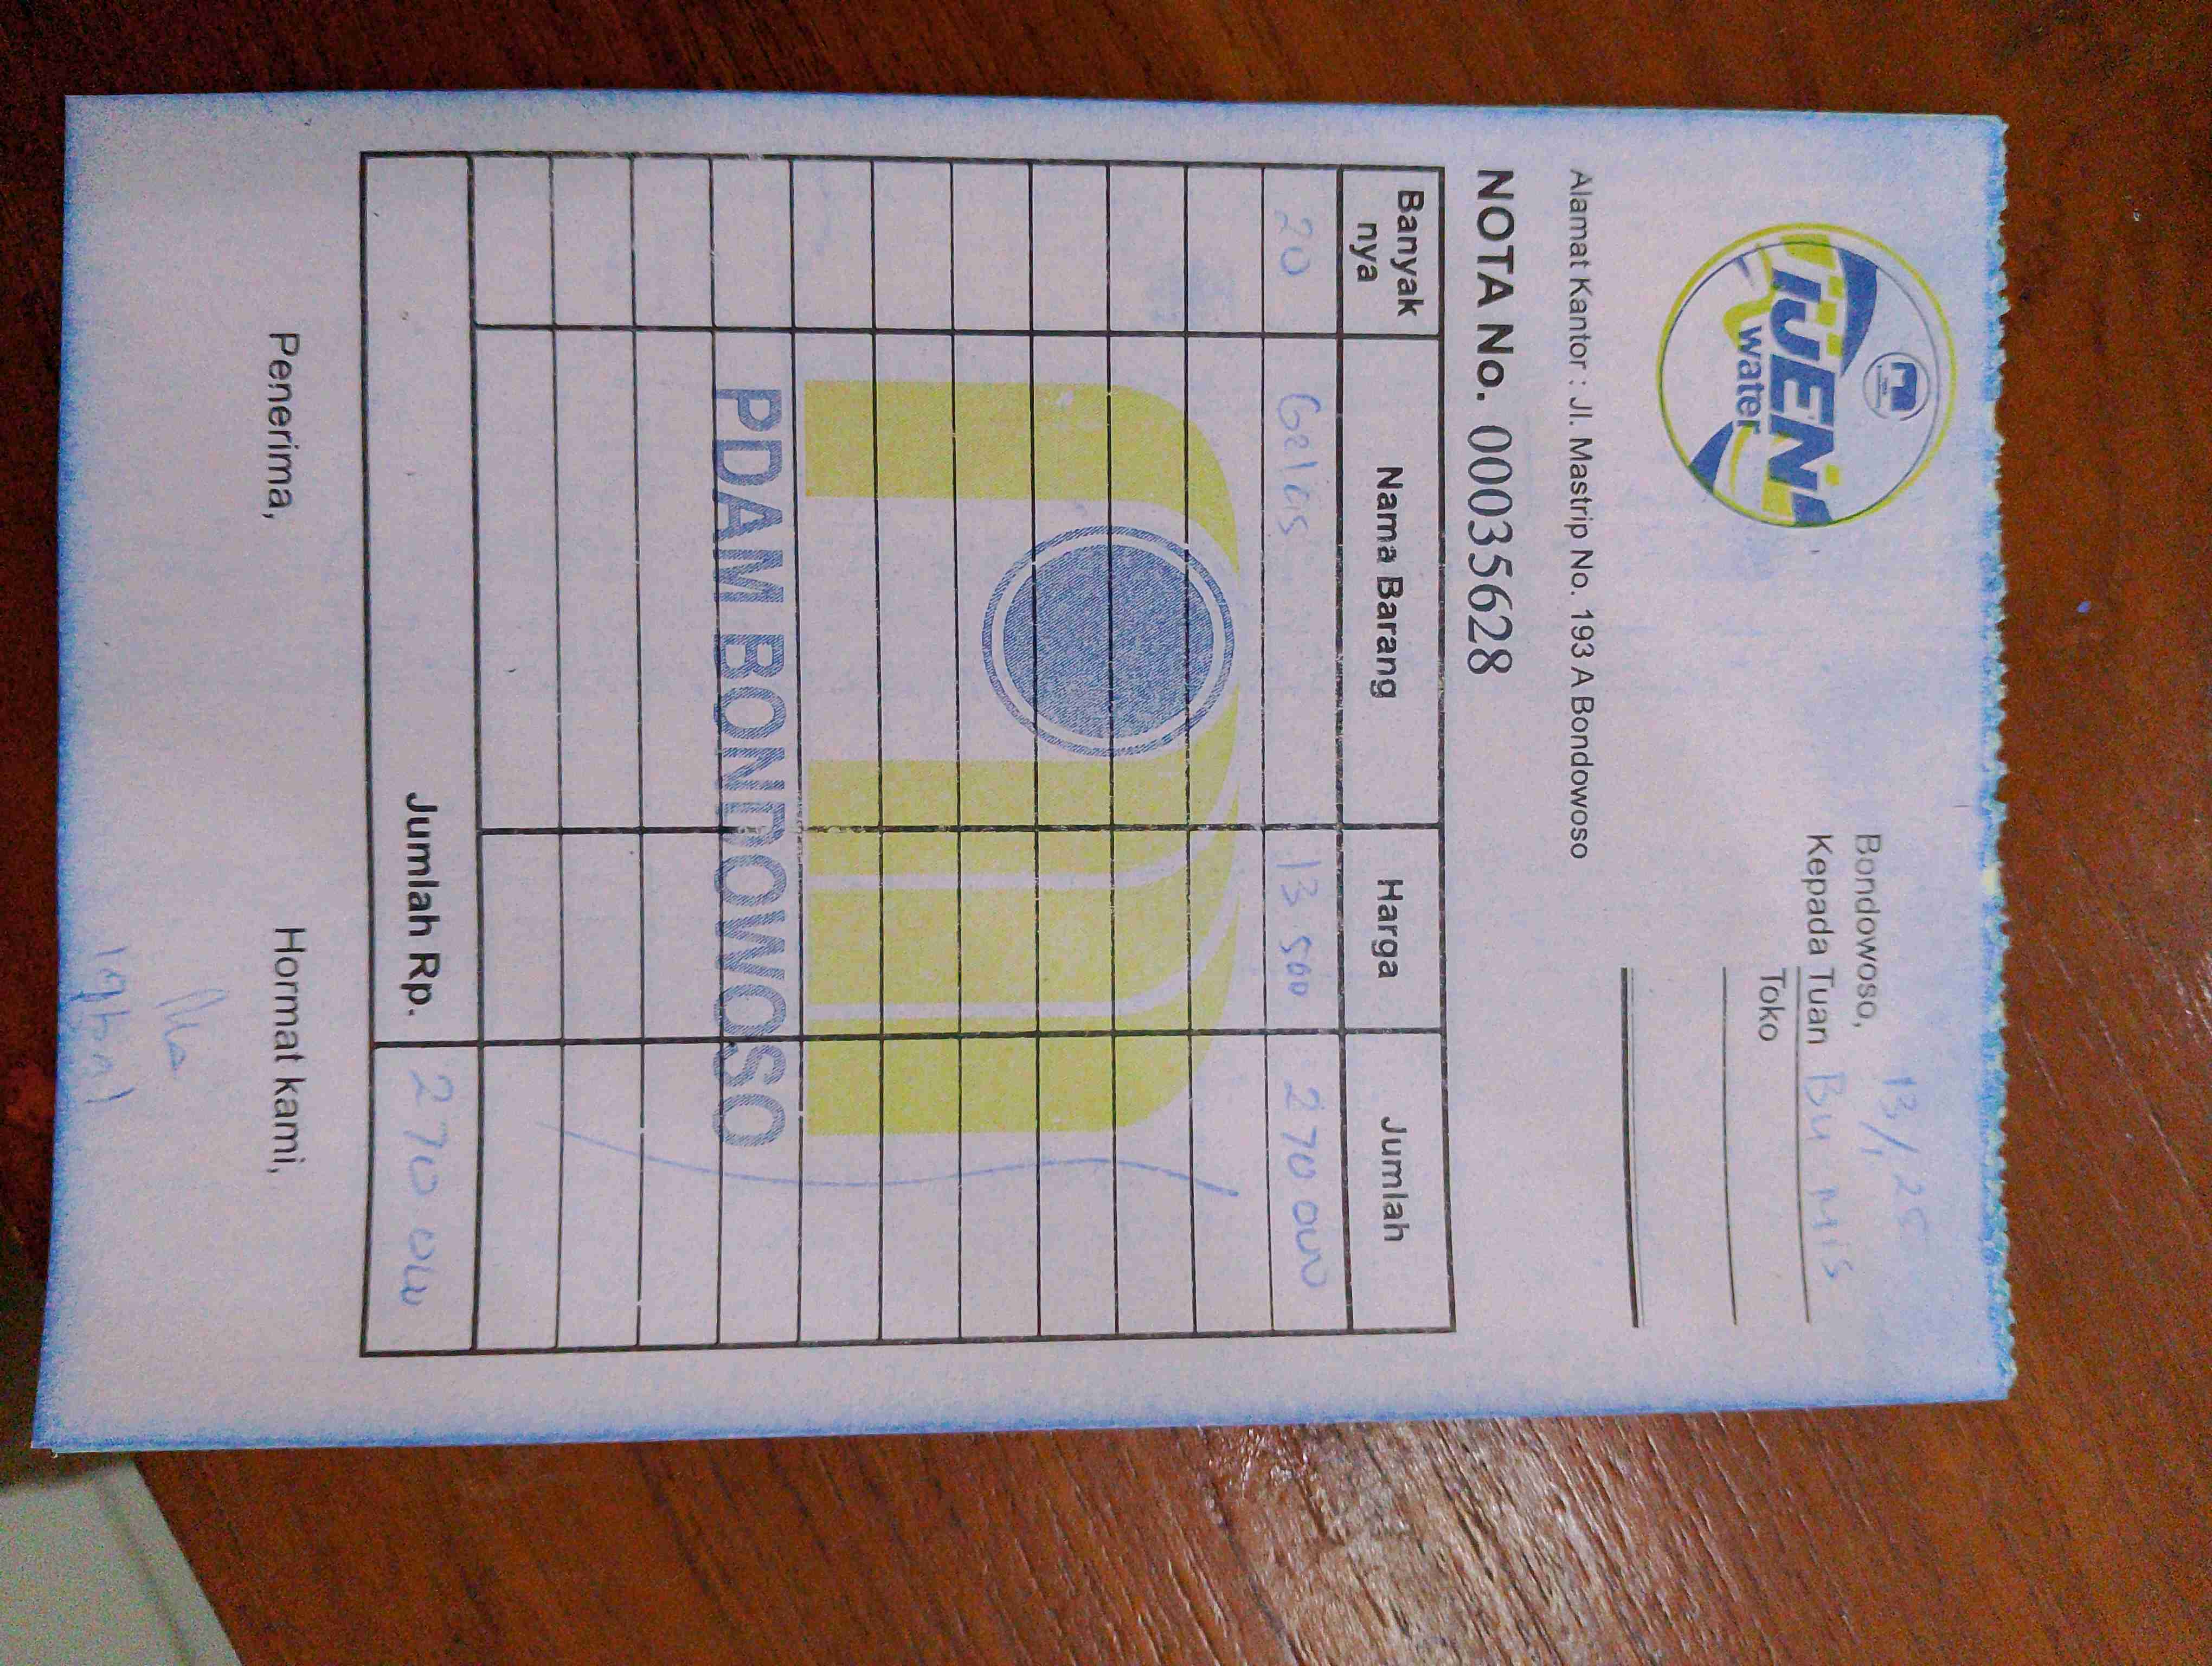 IJEN
water
Bondowoso, 13/1 25
Kepada Tuan Bu Mis
Toko
Alamat Kantor : Jl. Mastrip No. 193 A Bondowoso
NOTA No. 00035628
Banyak nya Nama Barang Harga Jumlah
20 Gelas 13 500 270 000
PDAM BONDOWOSO
Jumlah Rp. 270 000
Penerima, Hormat kami,
Iqbal